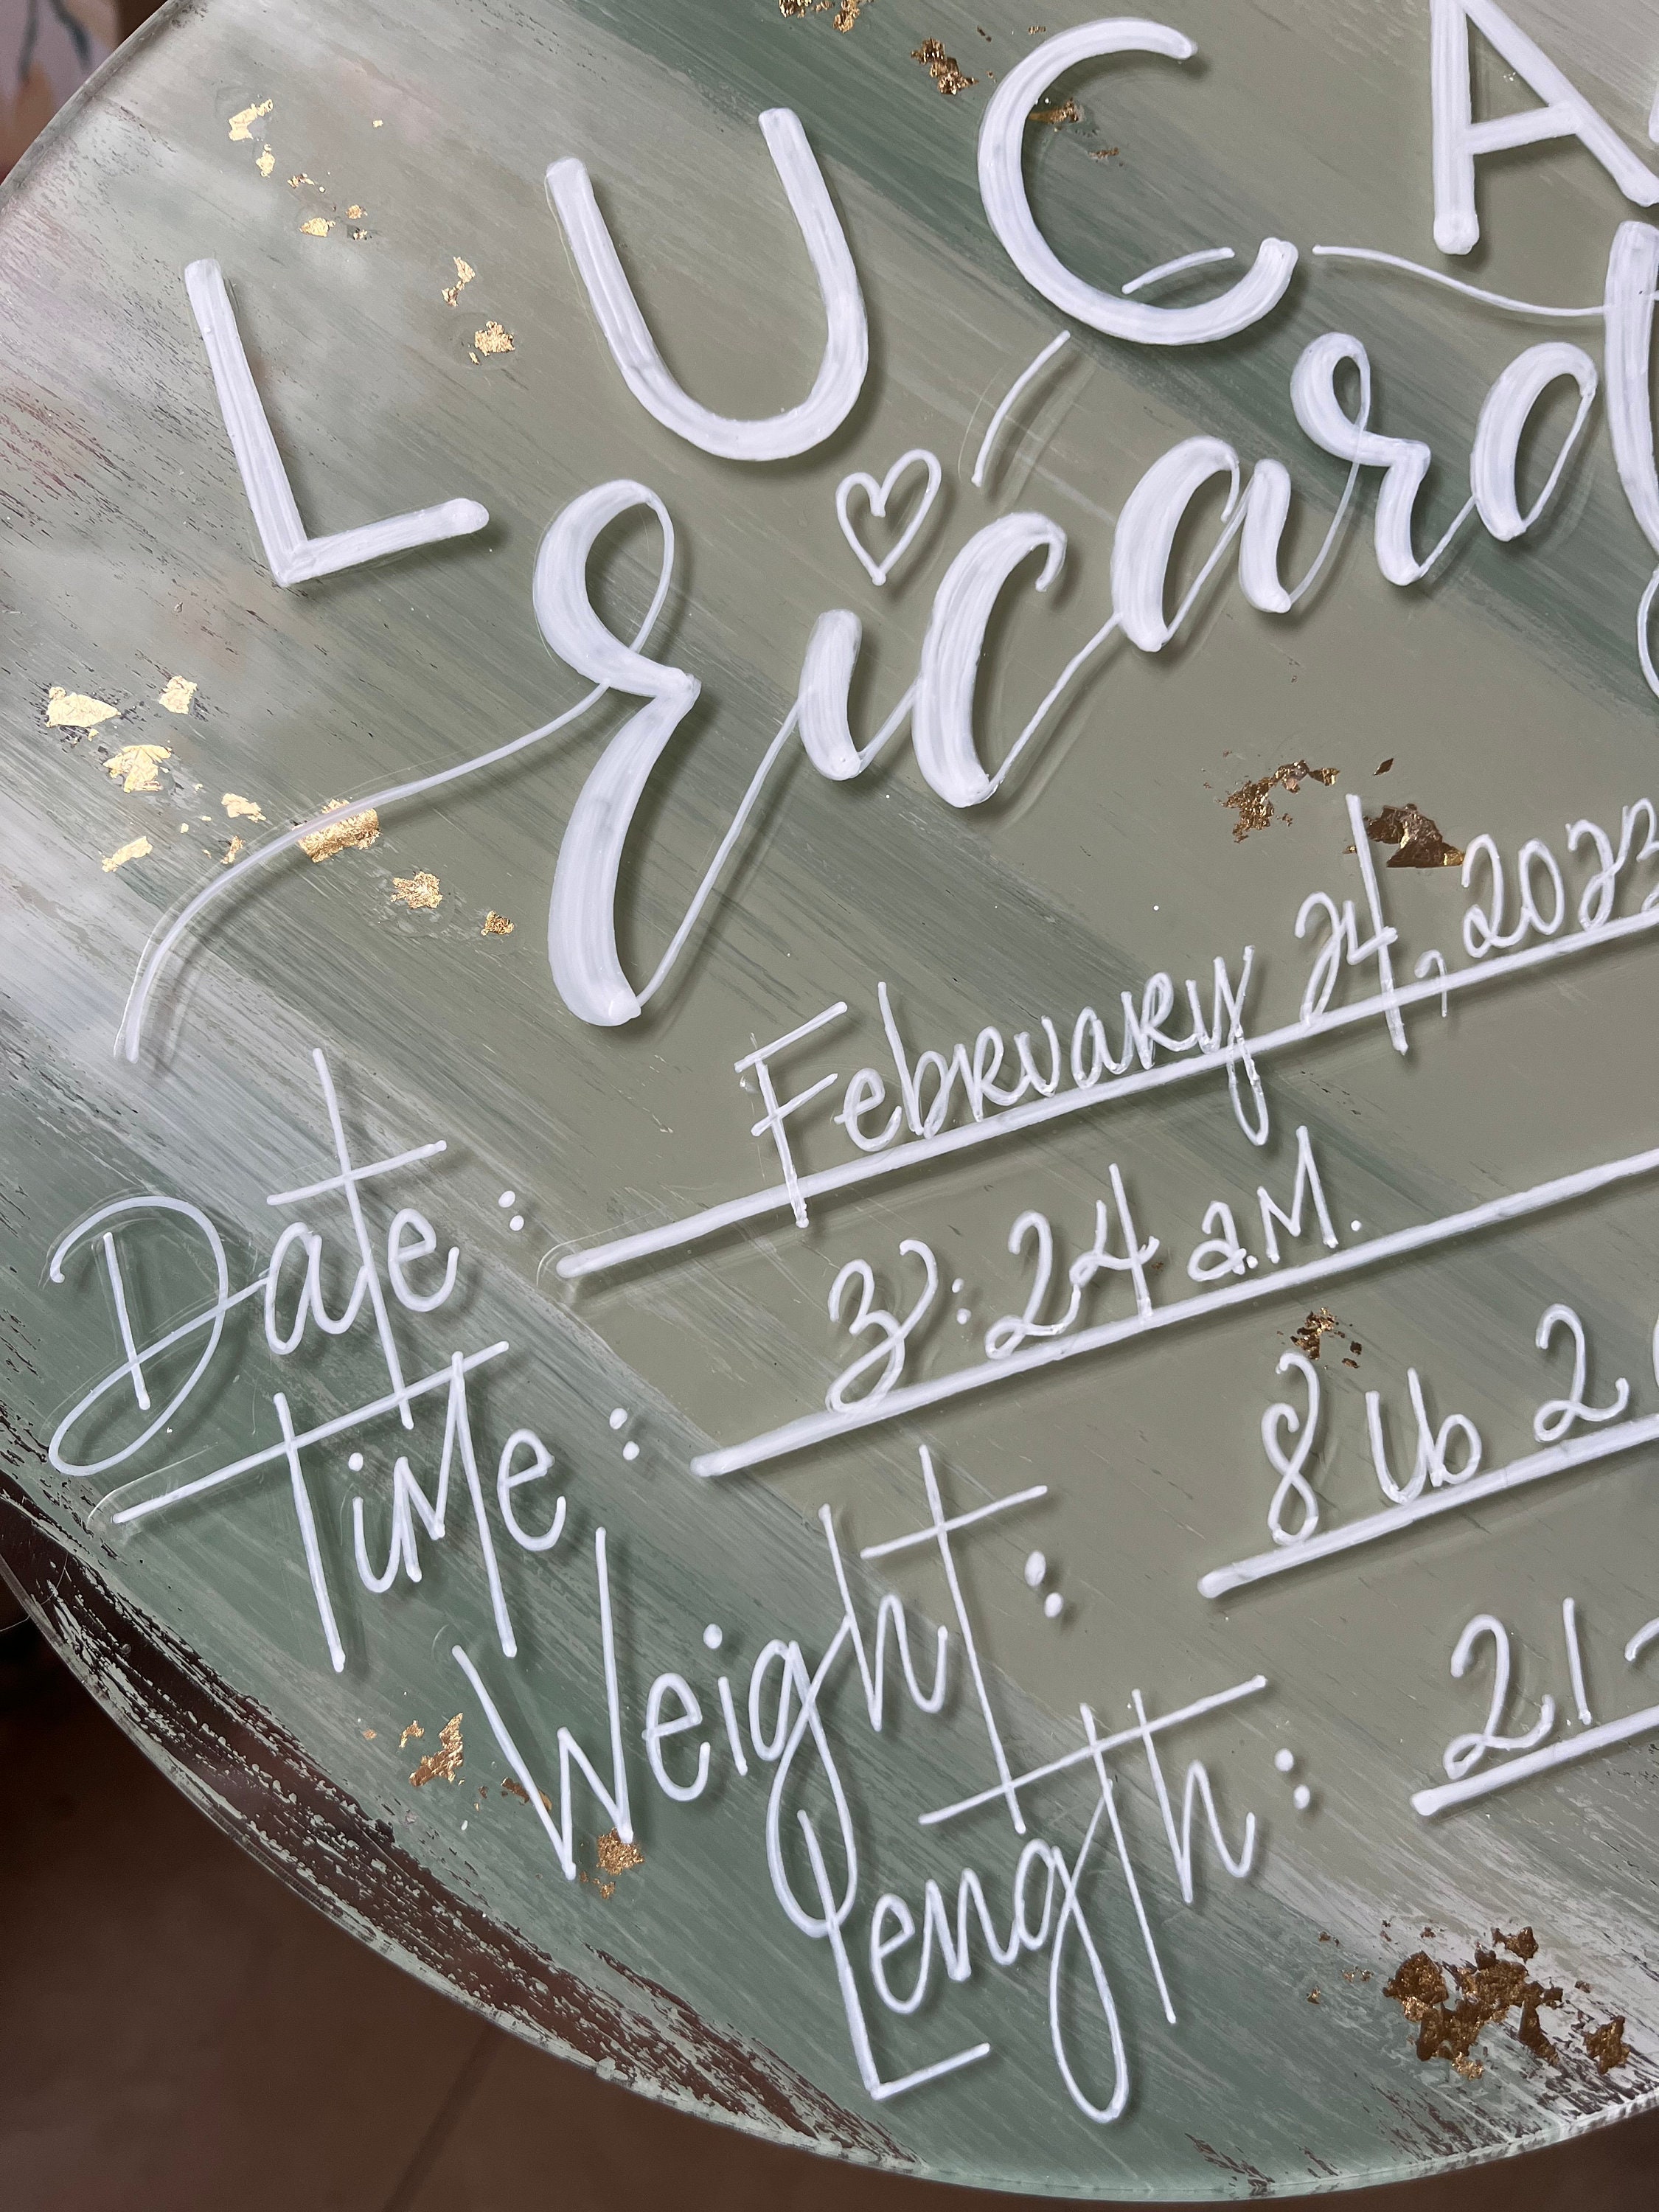 LUCA
Eicard
Date: February 24, 2023
Time: 3:24 a.m.
Weight: 8 lb 2
Length: 21